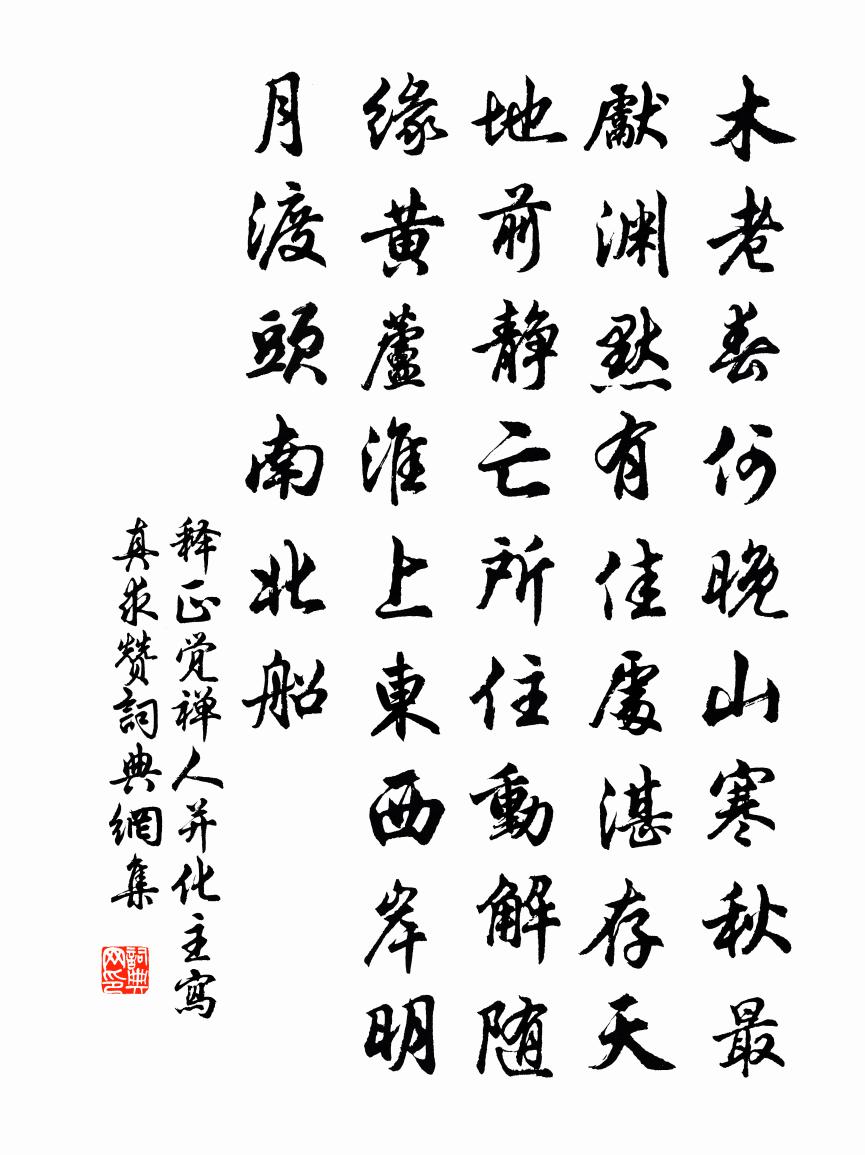 木老春何晚山寒秋最
獻渊默有佳處湛存天
地前静亡所住動解随
緣黄蘆淮上東西岸明
月渡頭南北船
释正覚禅人并化主寫
真求赞詞典網集
詞典网印